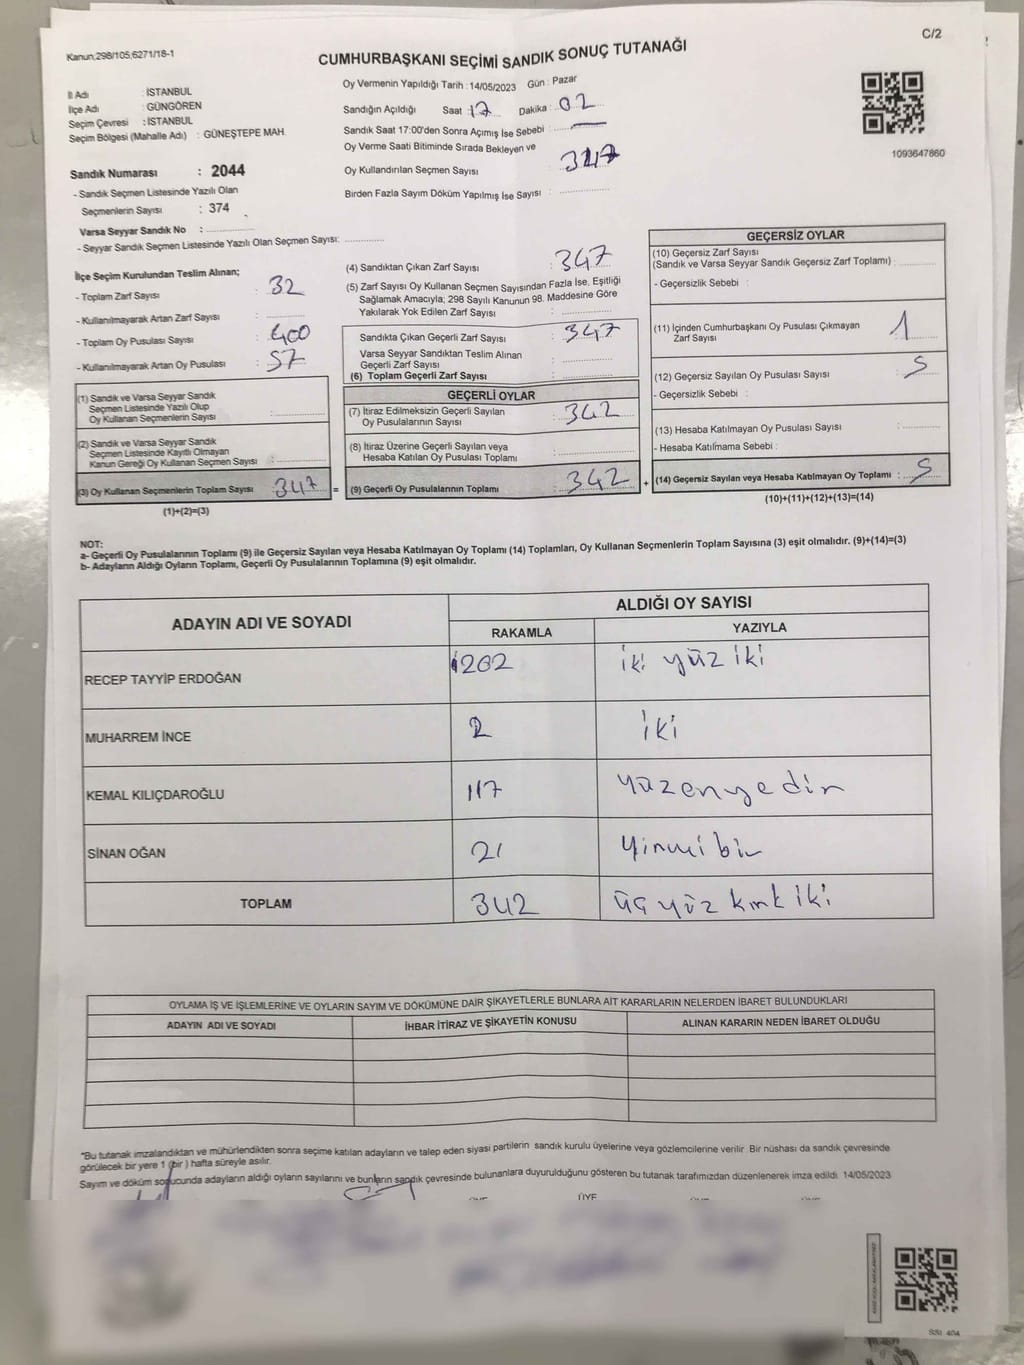 Kanun:298/105;6271/18-1
C/2
CUMHURBAŞKANI SEÇİMİ SANDIK SONUÇ TUTANAĞI
İl Adı : İSTANBUL
İlçe Adı : GÜNGÖREN
Seçim Çevresi : İSTANBUL
Seçim Bölgesi (Mahalle Adı) : GÜNEŞTEPE MAH.
Sandık Numarası : 2044
- Sandık Seçmen Listesinde Yazılı Olan
Seçmenlerin Sayısı : 374
Varsa Seyyar Sandık No :
- Seyyar Sandık Seçmen Listesinde Yazılı Olan Seçmen Sayısı:
Oy Vermenin Yapıldığı Tarih : 14/05/2023 Gün : Pazar
Sandığın Açıldığı Saat : 17 Dakika : 02
Sandık Saat 17:00'den Sonra Açımış İse Sebebi :
Oy Verme Saati Bitiminde Sırada Bekleyen ve
Oy Kullandırılan Seçmen Sayısı : 347
Birden Fazla Sayım Döküm Yapılmış İse Sayısı :
1093647860
İlçe Seçim Kurulundan Teslim Alınan;
- Toplam Zarf Sayısı : 32
- Kullanılmayarak Artan Zarf Sayısı :
- Toplam Oy Pusulası Sayısı : 400
- Kullanılmayarak Artan Oy Pusulası : 57
(1) Sandık ve Varsa Seyyar Sandık
Seçmen Listesinde Yazılı Olup
Oy Kullanan Seçmenlerin Sayısı :
(2) Sandık ve Varsa Seyyar Sandık
Seçmen Listesinde Kayıtlı Olmayan
Kanun Gereği Oy Kullanan Seçmen Sayısı :
(3) Oy Kullanan Seçmenlerin Toplam Sayısı : 347 =
(1)+(2)=(3)
(4) Sandıktan Çıkan Zarf Sayısı : 347
(5) Zarf Sayısı Oy Kullanan Seçmen Sayısından Fazla İse, Eşitliği
Sağlamak Amacıyla; 298 Sayılı Kanunun 98. Maddesine Göre
Yakılarak Yok Edilen Zarf Sayısı :
Sandıkta Çıkan Geçerli Zarf Sayısı : 347
Varsa Seyyar Sandıktan Teslim Alınan
Geçerli Zarf Sayısı :
(6) Toplam Geçerli Zarf Sayısı :
GEÇERLİ OYLAR
(7) İtiraz Edilmeksizin Geçerli Sayılan
Oy Pusulalarının Sayısı : 342
(8) İtiraz Üzerine Geçerli Sayılan veya
Hesaba Katılan Oy Pusulası Toplamı :
(9) Geçerli Oy Pusulalarının Toplamı : 342 +
GEÇERSİZ OYLAR
(10) Geçersiz Zarf Sayısı
(Sandık ve Varsa Seyyar Sandık Geçersiz Zarf Toplamı) :
- Geçersizlik Sebebi :
(11) İçinden Cumhurbaşkanı Oy Pusulası Çıkmayan
Zarf Sayısı : 1
(12) Geçersiz Sayılan Oy Pusulası Sayısı : 5
- Geçersizlik Sebebi :
(13) Hesaba Katılmayan Oy Pusulası Sayısı :
- Hesaba Katılmama Sebebi :
(14) Geçersiz Sayılan veya Hesaba Katılmayan Oy Toplamı : 5
(10)+(11)+(12)+(13)=(14)
NOT:
a- Geçerli Oy Pusulalarının Toplamı (9) ile Geçersiz Sayılan veya Hesaba Katılmayan Oy Toplamı (14) Toplamları, Oy Kullanan Seçmenlerin Toplam Sayısına (3) eşit olmalıdır. (9)+(14)=(3)
b- Adayların Aldığı Oyların Toplamı, Geçerli Oy Pusulalarının Toplamına (9) eşit olmalıdır.
ADAYIN ADI VE SOYADI
ALDIĞI OY SAYISI
RAKAMLA YAZIYLA
RECEP TAYYİP ERDOĞAN 202 iki yüz iki
MUHARREM İNCE 2 iki
KEMAL KILIÇDAROĞLU 117 yüzonyedir
SİNAN OĞAN 21 yirmi bir
TOPLAM 342 üç yüz kırk iki
OYLAMA İŞ VE İŞLEMLERİNE VE OYLARIN SAYIM VE DÖKÜMÜNE DAİR ŞİKAYETLERLE BUNLARA AİT KARARLARIN NELERDEN İBARET BULUNDUKLARI
ADAYIN ADI VE SOYADI İHBAR İTİRAZ VE ŞİKAYETİN KONUSU ALINAN KARARIN NEDEN İBARET OLDUĞU
*Bu tutanak imzalandıktan ve mühürlendikten sonra seçime katılan adayların ve talep eden siyasi partilerin sandık kurulu üyelerine veya gözlemcilerine verilir. Bir nüshası da sandık çevresinde
görülecek bir yere 1 (bir) hafta süreyle asılır.
Sayım ve döküm sonucunda adayların aldığı oyların sayılarını ve bunların sandık çevresinde bulunanlara duyurulduğunu gösteren bu tutanak tarafımızdan düzenlenerek imza edildi. 14/05/2023
ÜYE